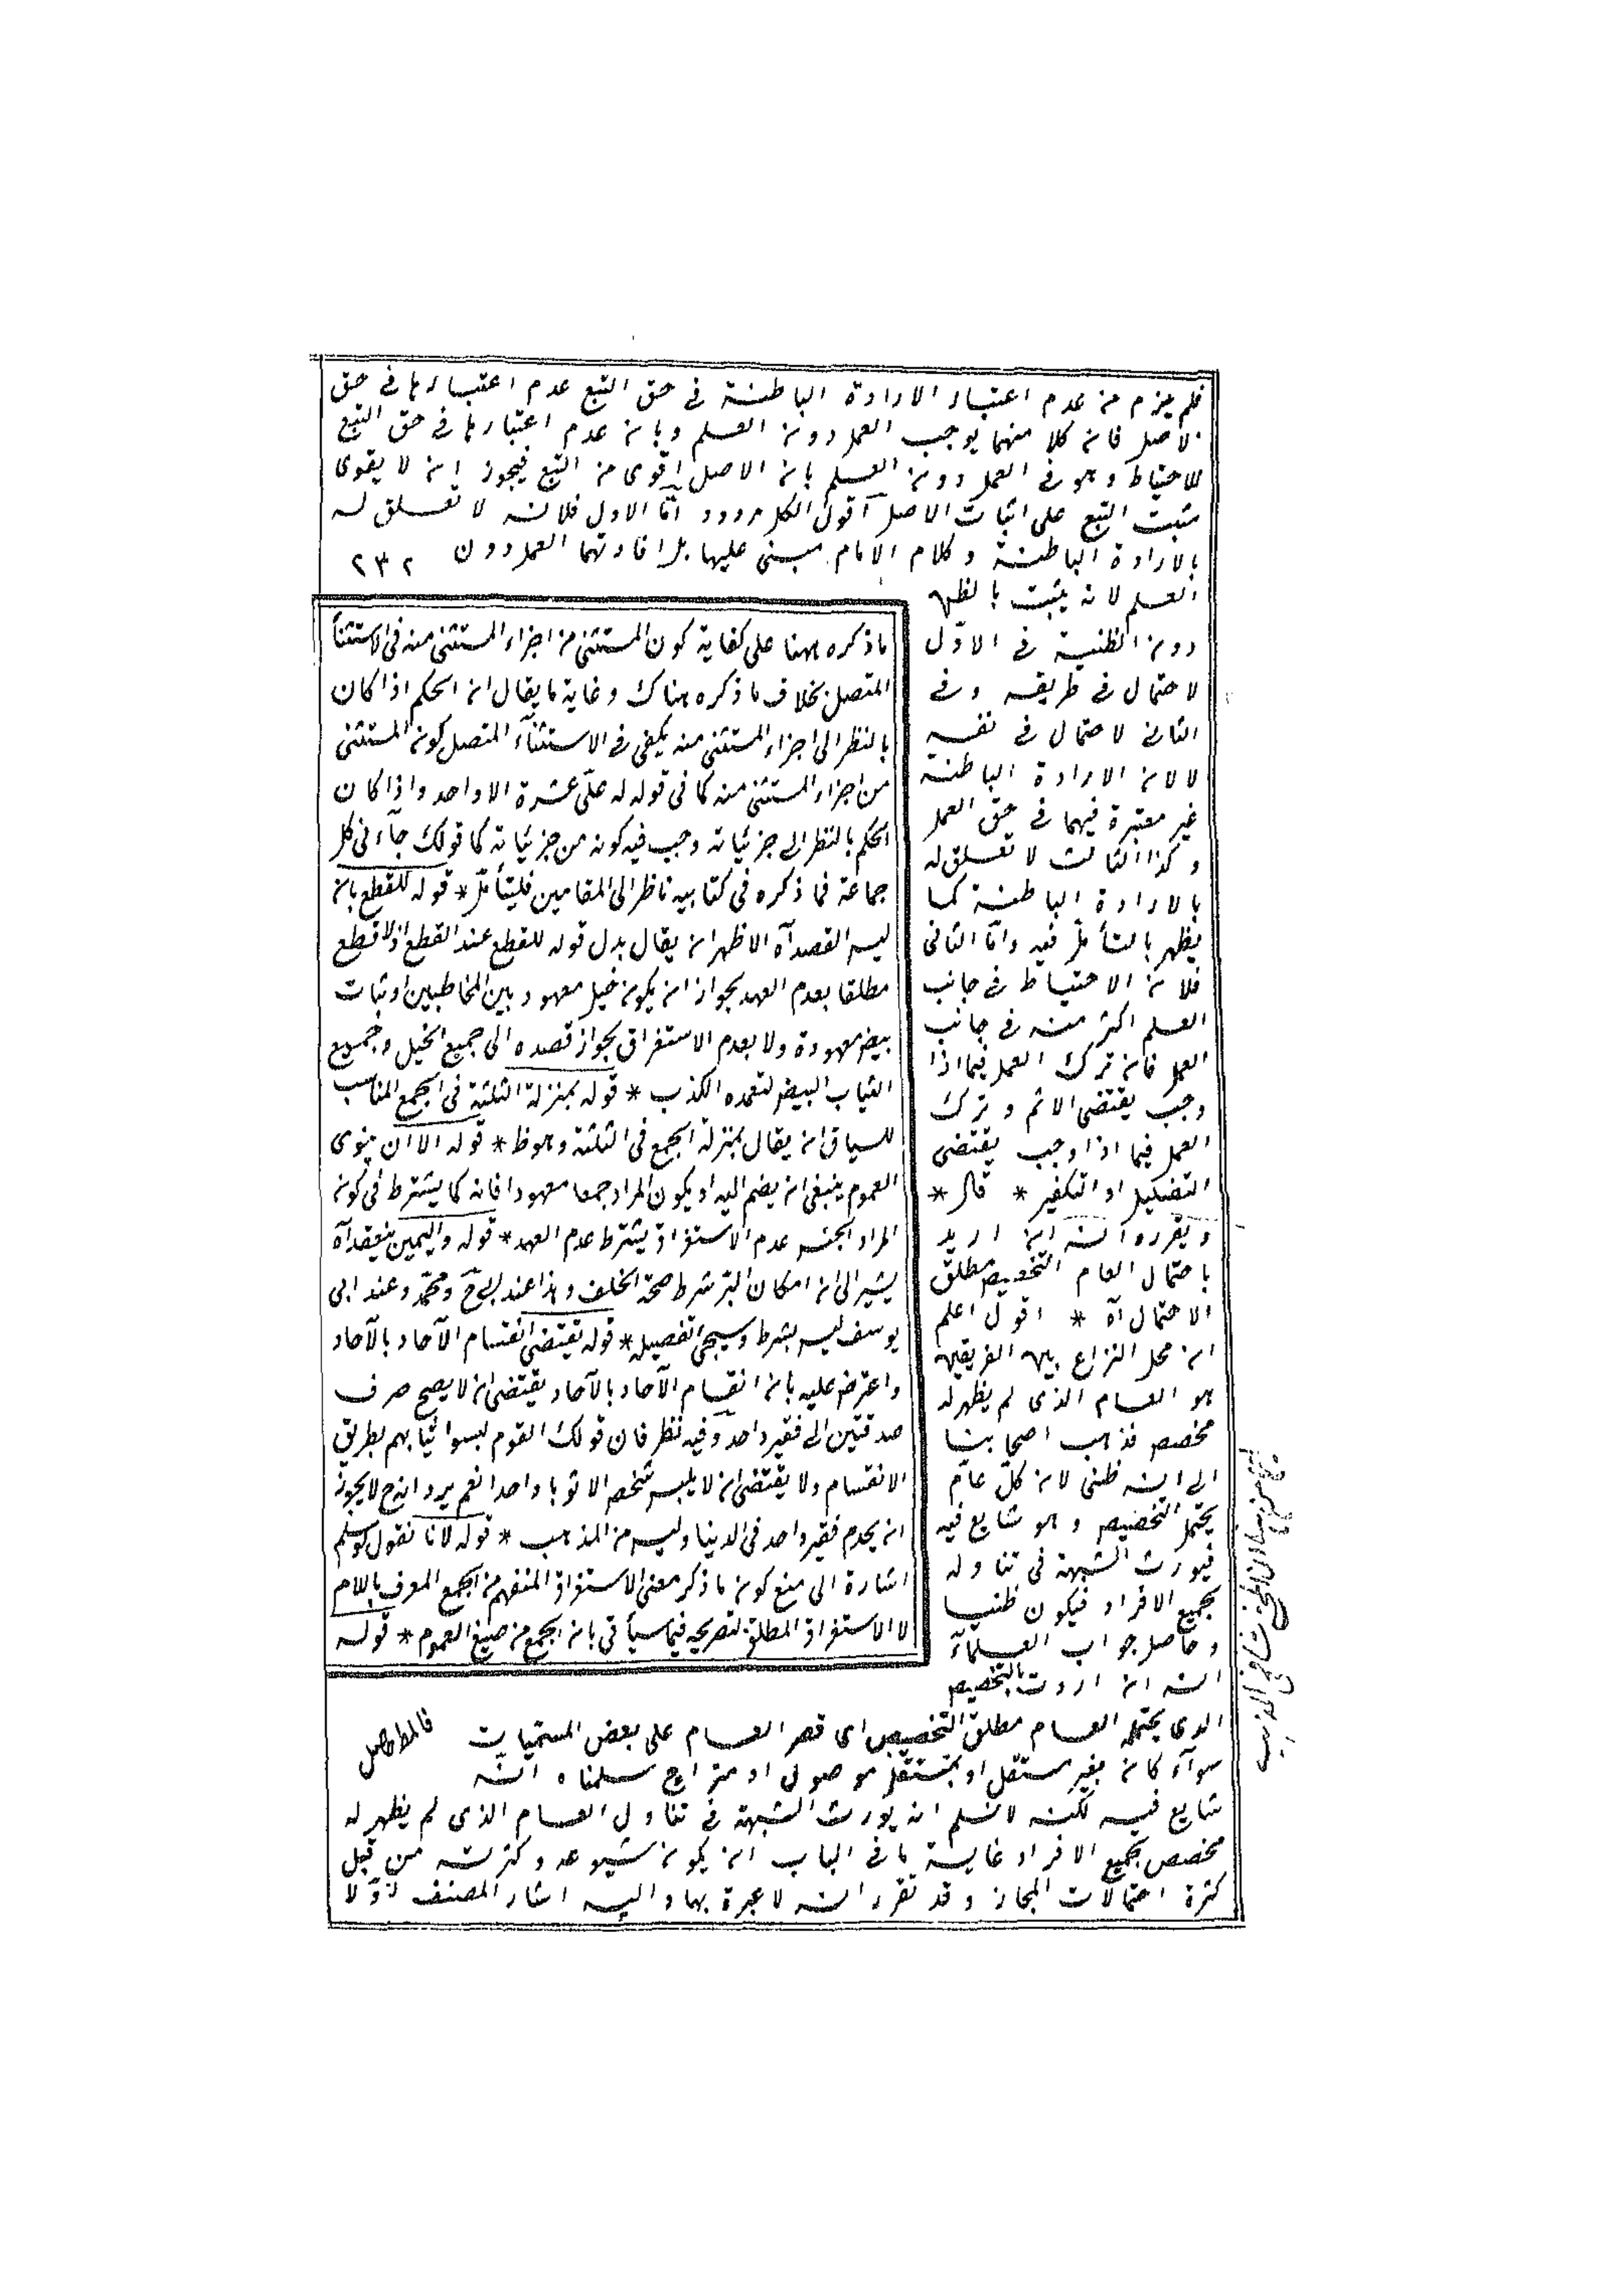 فلم يلزم من عدم اعتبار الارادة الباطنة في حق التبع عدم اعتبارها في حق
الاصل فان كلا منهما يوجب العمل دون العلم وبان عدم اعتبارها في حق التبع
للاحتياط وهو في العمل دون العلم بان الاصل اقوى من التبع فيجوز ان لا يقوى
مثبت التبع على اثبات الاصل اقول الكل مردود امّا الاول فلانه لا تعلق له
بالارادة الباطنة وكلام الامام مبنى عليها بل افادتهما العمل دون
٢٣٢
العلم لانه يثبت بالظن
دون الظنية في الاوّل
لاحتمال في طريقه وفي
الثاني لاحتمال في نفسه
لا لان الارادة الباطنة
غير معتبرة فيهما في حق العمل
وكذا الثالث لا تعلق له
بالارادة الباطنة كما
يظهر بالتأمّل فيه وامّا الثاني
فلان الاحتياط في جانب
العلم اكثر منه في جانب
العمل فان ترك العمل فيما اذا
وجب يقتضى الاثم وترك
العمل فيما اذا وجب يقتضى
التضليل او التكفير * قال *
ويقرره انه ان اريد
باحتمال العام التخصيص مطلق
الاحتمال آه * اقول اعلم
ان محل النزاع بين الفريقين
هو العام الذى لم يظهر له
مخصص فذهب اصحابنا
الى انه ظنى لان كلّ عامّ
يحتمل التخصيص وهو شايع فيه
فيورث الشبهة في تناوله
بجميع الافراد فيكون ظنيا
وحاصل جواب العلمآء
انه ان اردت بالتخصيص
الذى يحتمله العام مطلق التخصيص اى قصر العام على بعض المسميات
سوآء كان بغير مستقل او بمستقل موصول او متراخ سلمناه انه
شايع فيه لكنه لا نسلم انه يورث الشبهة في تناول العام الذى لم يظهر له
مخصص بجميع الافراد غاية ما في الباب ان يكون شيوعه وكثرته من قبل
كثرة احتمالات المجاز وقد تقرر انه لا عبرة بها واليه اشار المصنف اوّلا
ما ذكره ههنا على كفاية كون المستثنى من اجزاء المستثنى منه في الاستثنآ
المتصل بخلاف ما ذكره هناك وغاية ما يقال ان الحكم اذا كان
بالنظر الى اجزاء المستثنى منه يكفى في الاستثنآء المتصل كون المستثنى
من اجزاء المستثنى منه كما في قوله له علىّ عشرة الا واحد واذا كان
الحكم بالنظر الى جزئياته وجب فيه كونه من جزئياته كما قولك جآء في كل
جماعة فما ذكره في كتابيه ناظر الى المقامين فليتأمّل * قوله للقطع بان
ليس القصد آه الاظهر ان يقال بدل قوله للقطع عند القطع اذ لا قطع
مطلقا بعدم العهد بجواز ان يكون خيل معهود بين المخاطبين او ثبات
بيض معهودة ولا بعدم الاستغراق بجواز قصده الى جميع الخيل وجميع
الثياب البيض لتعمده الكذب * قوله بمنزلة الثلثة في الجمع المناسب
للسياق ان يقال بمنزلة الجمع في الثلثة وهو ظ * قوله الا ان ينوى
العموم ينبغى ان يضم اليه او يكون المراد جمعا معهودا فانه كما يشترط في كون
المراد الجنس عدم الاستغراق يشترط عدم العهد * قوله واليمين ينعقد آه
يشير الى ان امكان البرّ شرط صحة الخلف وهذا عند ابى ح ومحمّد وعند ابى
يوسف ليس بشرط وسيجئ تفصيله * قوله يقتضى انقسام الآحاد بالآحاد
واعترض عليه بان انقسام الآحاد بالآحاد يقتضى ان لا يصح صرف
صدقتين الى فقير واحد وفيه نظر فان قولك القوم لبسوا ثيابهم بطريق
الانقسام ولا يقتضى ان لا يلبس شخص الا ثوبا واحدا نعم يرد انه ح لا يجوز
ان يحرم فقير واحد في الدنيا وليس من المذهب * قوله لانا نقول لو سلم
اشارة الى منع كون ما ذكر معنى الاستغراق المنفهم من الجمع المعرف باللام
لا الاستغراق المطلق لتصريحه فيما سيأتى بان الجمع من صيغ العموم * قوله